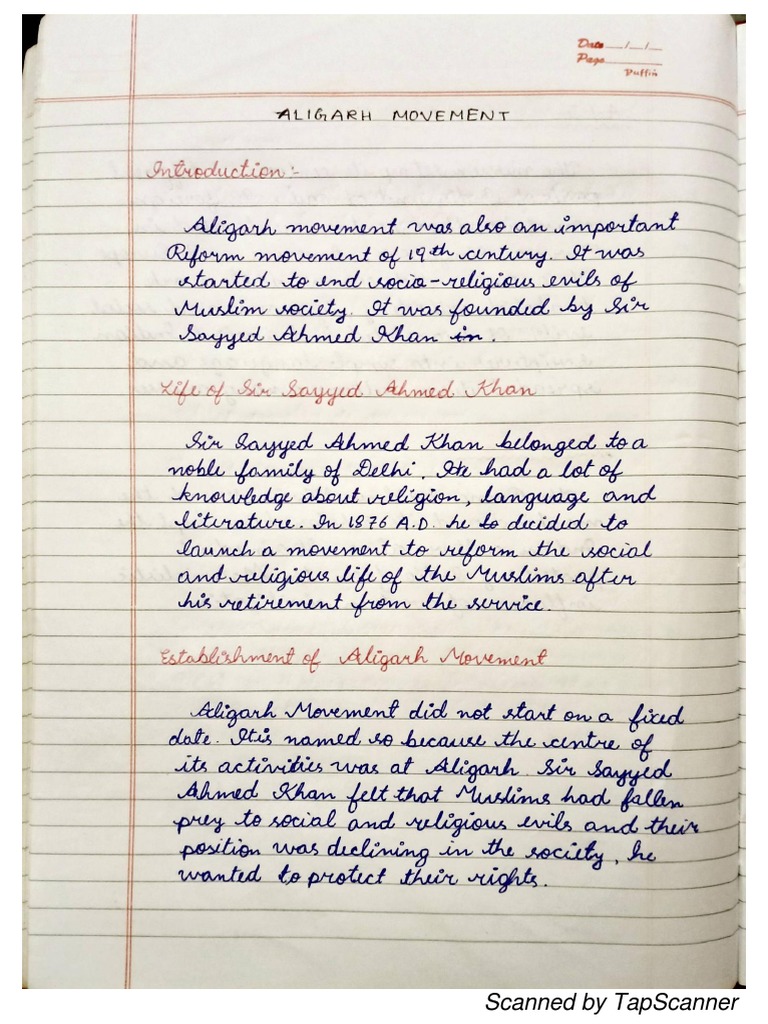 Date __/__/__
Page ________
Duffin
ALIGARH MOVEMENT
Introduction :-
Aligarh movement was also an important
Reform movement of 19th century. It was
started to end socio-religious evils of
Muslim society. It was founded by Sir
Sayyed Ahmed Khan in.
Life of Sir Sayyed Ahmed Khan
Sir Sayyed Ahmed Khan belonged to a
noble family of Delhi. He had a lot of
knowledge about religion, language and
literature. In 1876 A.D. he to decided to
launch a movement to reform the social
and religious life of the Muslims after
his retirement from the service.
Establishment of Aligarh Movement
Aligarh Movement did not start on a fixed
date. It is named so because the centre of
its activities was at Aligarh. Sir Sayyed
Ahmed Khan felt that Muslims had fallen
prey to social and religious evils and their
position was declining in the society, he
wanted to protect their rights.
Scanned by TapScanner